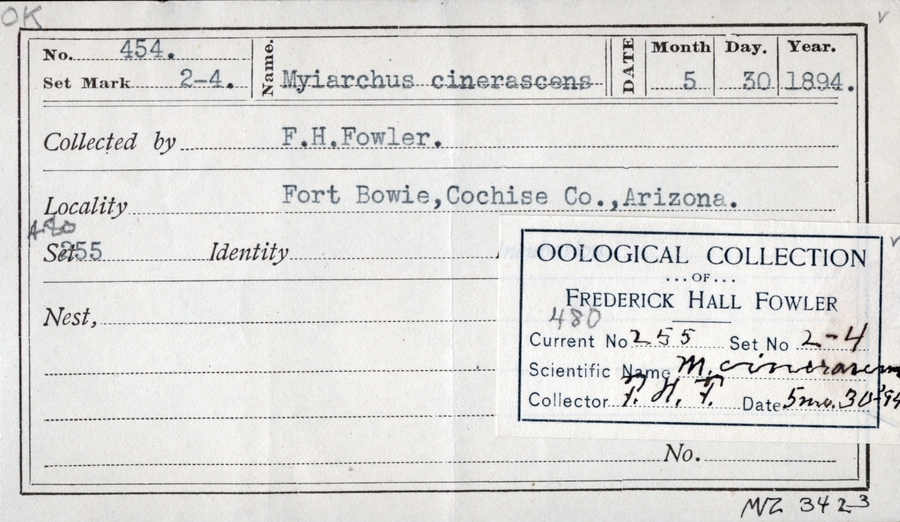 OK
No. 454. Name. Myiarchus cinerascens DATE Month Day. Year.
Set Mark 2-4. 5 30 1894.
Collected by F.H.Fowler.
Locality Fort Bowie,Cochise Co.,Arizona.
480
Set 255 Identity
Nest,
No.
OOLOGICAL COLLECTION
...OF...
FREDERICK HALL FOWLER
480
Current No 255 Set No 2-4
Scientific Name M. cinerascens
Collector F. H. F. Date 5mo. 30-'94
MVZ 3423